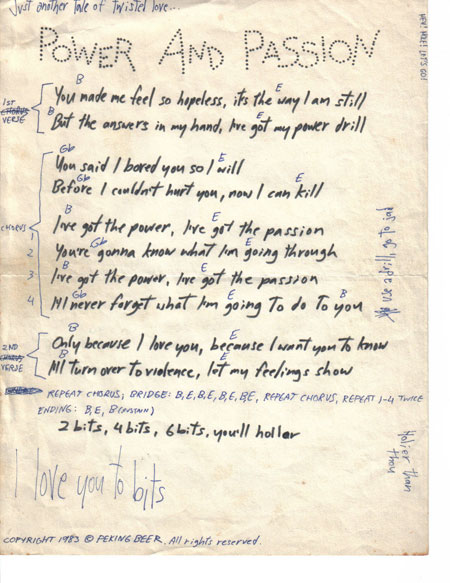 Just another Tale of Twisted love...
HEY! HOE! LET'S GO!
POWER AND PASSION
B E
1ST CHORUS VERSE You made me feel so hopeless, it's the way I am still
B E
But the answers in my hand, I've got my power drill
Gb
You said I bored you so I will
Gb E
Before I couldn't hurt you, now I can kill
B E
CHORUS 1 I've got the power, I've got the passion
Gb E
2 You're gonna know what I'm going through
B E
3 I've got the power, I've got the passion
Gb E B
4 I'll never forget what I'm going To do To you
B E
2ND CHORUS VERSE Only because I love you, because I want you to know
B E
I'll turn over to violence, let my feelings show
REPEAT CHORUS, BRIDGE: B,E,B,E, B,E, BE, REPEAT CHORUS, REPEAT 1-4 TWICE
ENDING: B,E, B
2 bits, 4 bits, 6 bits, you'll holler
Holier than thou
I love you to bits
COPYRIGHT 1983 © PEKING BEER. All rights reserved.